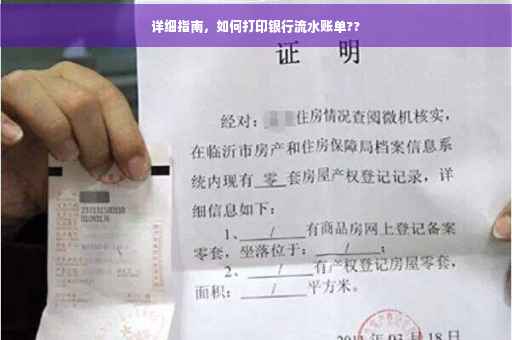 详细指南，如何打印银行流水账单??
证 明
经对：住房情况查阅微机核实，
在临沂市房产和住房保障局档案信息系
统内现有 零 套房屋产权登记记录，详
细信息如下：
1、 / 有商品房网上登记备案
零套，坐落位于： / ；
2、 / 有产权登记房屋零套，
面积： / 平方米。
03月18日